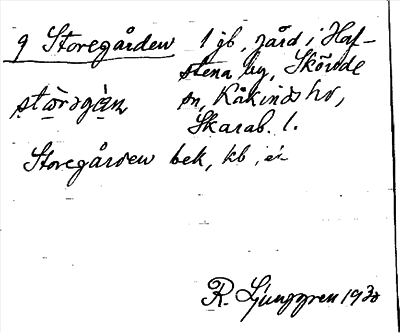 9 Storegården 1 gb, gård i Haf-
stena by, Skövde
stòrəgàn sn, Kåkinds hd,
Skarab. l.
Storegården bek, kb,
R. Ljunggren 1930